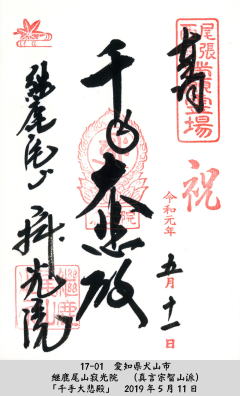 奉拝
尾張
霊場
祝
令和元年
五月十一日
千手大悲殿
継鹿尾山
寂光院
17-01　愛知県犬山市
継鹿尾山寂光院　（真言宗智山派）
「千手大悲殿」　2019年5月11日